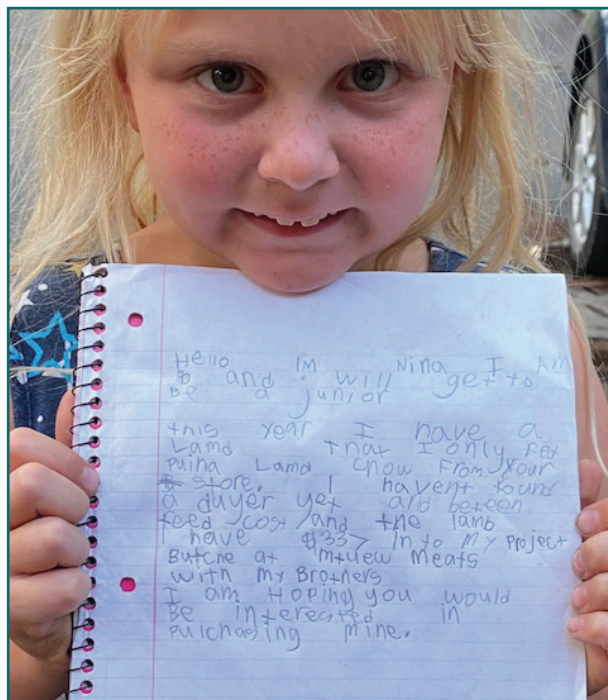 Hello IM Nina I AM
8 and i will get to
Be a junior
this year I have a
Lamd That I only fed
Puina Lamd chow From your
store. I havent found
a duyer yet and beteen
feed cost and the lamb
I have $337 Into My project
Butche at mtview Meats
with my Brothers
I am Hoping you would
Be interested in
Pulchasing mine.